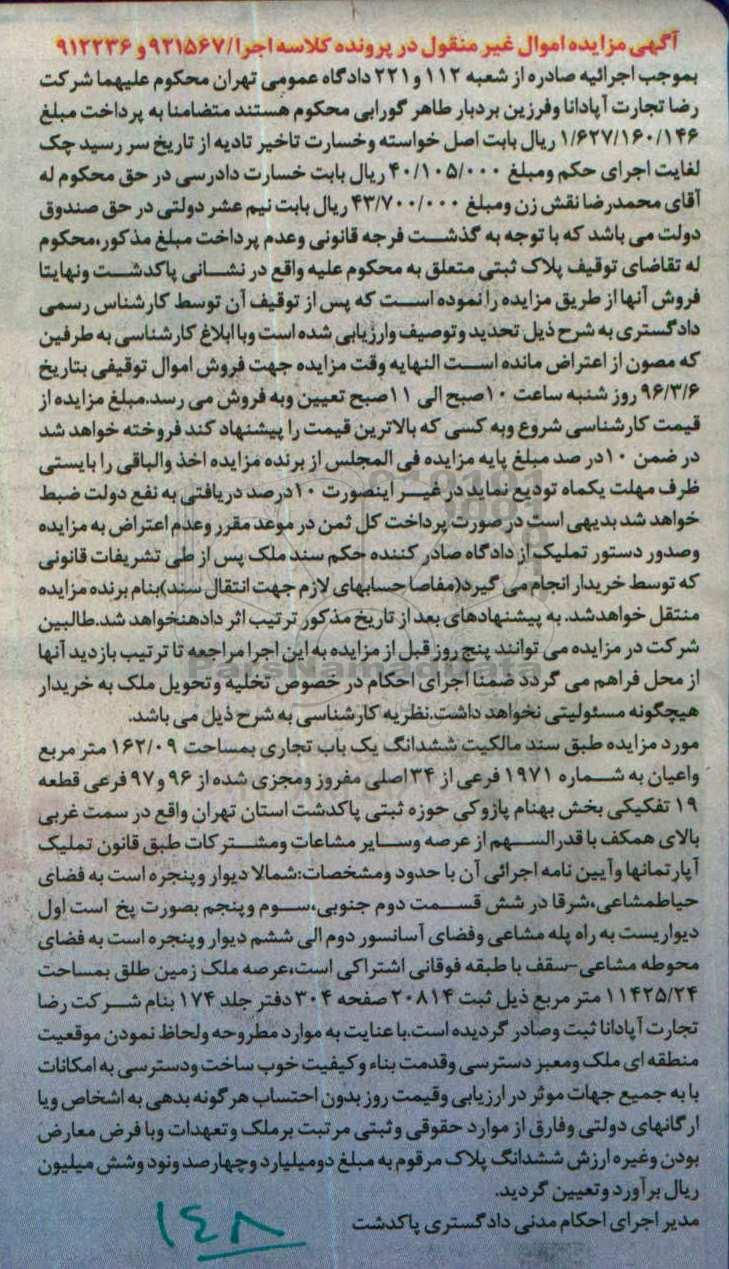 آگهی مزایده اموال غیر منقول در پرونده کلاسه اجرا/۹۲۱۵۶۷ و ۹۱۲۲۳۶
بموجب اجرائیه صادره از شعبه ۱۱۲ و ۲۲۱ دادگاه عمومی تهران محکوم علیهما شرکت
رضا تجارت آپادانا وفرزین بردبار طاهر گورابی محکوم هستند متضامنا به پرداخت مبلغ
۱/۶۲۷/۱۶۰/۱۴۶ ریال بابت اصل خواسته وخسارت تاخیر تادیه از تاریخ سر رسید چک
لغایت اجرای حکم ومبلغ ۴۰/۱۰۵/۰۰۰ ریال بابت خسارت دادرسی در حق محکوم له
آقای محمدرضا نقش زن ومبلغ ۴۳/۷۰۰/۰۰۰ ریال بابت نیم عشر دولتی در حق صندوق
دولت می باشد که با توجه به گذشت فرجه قانونی وعدم پرداخت مبلغ مذکور،محکوم
له تقاضای توقیف پلاک ثبتی متعلق به محکوم علیه واقع در نشانی پاکدشت ونهایتا
فروش آنها از طریق مزایده را نموده است که پس از توقیف آن توسط کارشناس رسمی
دادگستری به شرح ذیل تحدید وتوصیف وارزیابی شده است وبا ابلاغ کارشناسی به طرفین
که مصون از اعتراض مانده است النهایه وقت مزایده جهت فروش اموال توقیفی بتاریخ
۹۶/۳/۶ روز شنبه ساعت ۱۰صبح الی ۱۱صبح تعیین وبه فروش می رسد.مبلغ مزایده از
قیمت کارشناسی شروع وبه کسی که بالاترین قیمت را پیشنهاد کند فروخته خواهد شد
در ضمن ۱۰در صد مبلغ پایه مزایده فی المجلس از برنده مزایده اخذ والباقی را بایستی
ظرف مهلت یکماه تودیع نماید در غیر اینصورت ۱۰درصد دریافتی به نفع دولت ضبط
خواهد شد بدیهی است در صورت پرداخت کل ثمن در موعد مقرر وعدم اعتراض به مزایده
وصدور دستور تملیک از دادگاه صادر کننده حکم سند ملک پس از طی تشریفات قانونی
که توسط خریدار انجام می گیرد(مفاصا حسابهای لازم جهت انتقال سند)بنام برنده مزایده
منتقل خواهدشد. به پیشنهادهای بعد از تاریخ مذکور ترتیب اثر دادهنخواهد شد.طالبین
شرکت در مزایده می توانند پنج روز قبل از مزایده به این اجرا مراجعه تا ترتیب بازدید آنها
از محل فراهم می گردد ضمنا اجرای احکام در خصوص تخلیه وتحویل ملک به خریدار
هیچگونه مسئولیتی نخواهد داشت.نظریه کارشناسی به شرح ذیل می باشد.
مورد مزایده طبق سند مالکیت ششدانگ یک باب تجاری بمساحت ۱۶۲/۰۹ متر مربع
واعیان به شماره ۱۹۷۱ فرعی از ۳۴اصلی مفروز ومجزی شده از ۹۶ و ۹۷ فرعی قطعه
۱۹ تفکیکی بخش بهنام پازوکی حوزه ثبتی پاکدشت استان تهران واقع در سمت غربی
بالای همکف با قدرالسهم از عرصه وسایر مشاعات ومشترکات طبق قانون تملیک
آپارتمانها وآیین نامه اجرائی آن با حدود ومشخصات:شمالا دیوار وپنجره است به فضای
حیاطمشاعی،شرقا در شش قسمت دوم جنوبی،سوم وپنجم بصورت پخ است اول
دیواریست به راه پله مشاعی وفضای آسانسور دوم الی ششم دیوار وپنجره است به فضای
محوطه مشاعی-سقف با طبقه فوقانی اشتراکی است،عرصه ملک زمین طلق بمساحت
۱۱۴۲۵/۲۴ متر مربع ذیل ثبت ۲۰۸۱۴ صفحه ۳۰۴ دفتر جلد ۱۷۴ بنام شرکت رضا
تجارت آپادانا ثبت وصادر گردیده است.با عنایت به موارد مطروحه ولحاظ نمودن موقعیت
منطقه ای ملک ومعبر دسترسی وقدمت بناء وکیفیت خوب ساخت ودسترسی به امکانات
با به جمیع جهات موثر در ارزیابی وقیمت روز بدون احتساب هرگونه بدهی به اشخاص ویا
ارگانهای دولتی وفارق از موارد حقوقی وثبتی مرتبت بر ملک وتعهدات وبا فرض معارض
بودن وغیره ارزش ششدانگ پلاک مرقوم به مبلغ دومیلیارد وچهارصد ونود وشش میلیون
ریال برآورد وتعیین گردید.
مدیر اجرای احکام مدنی دادگستری پاکدشت
۱۴۸
ParsNamadData